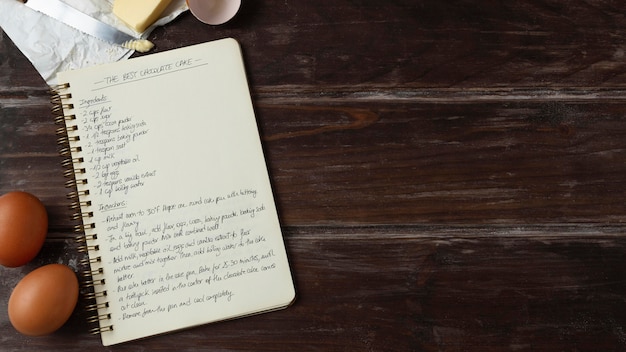 - THE BEST CHOCOLATE CAKE -
Ingredients:
- 2 cups flour
- 2 cups sugar
- 3/4 cups cocoa powder
- 2 teaspoons baking powder
- 1 teaspoon salt
- 1 cup milk
- 1/2 cup vegetable oil
- 2 big eggs
- 2 teaspoons vanilla extract
- 1 cup boiling water
Instructions:
- Preheat oven to 350F. Prepare one round cake pan with buttering
and flouring
- In a big bowl, add flour, sugar, cocoa, baking powder, baking soda
and
- Add milk, vegetable oil, eggs and vanilla extract to flour
mixture and mix together. Then, add boiling water to the cake
batter.
- Pour cake batter in the cake pan. Bake for 25-30 minutes, until
a toothpick inserted in the center of the chocolate cake comes
out clean.
- Remove from the pan and cool completely.